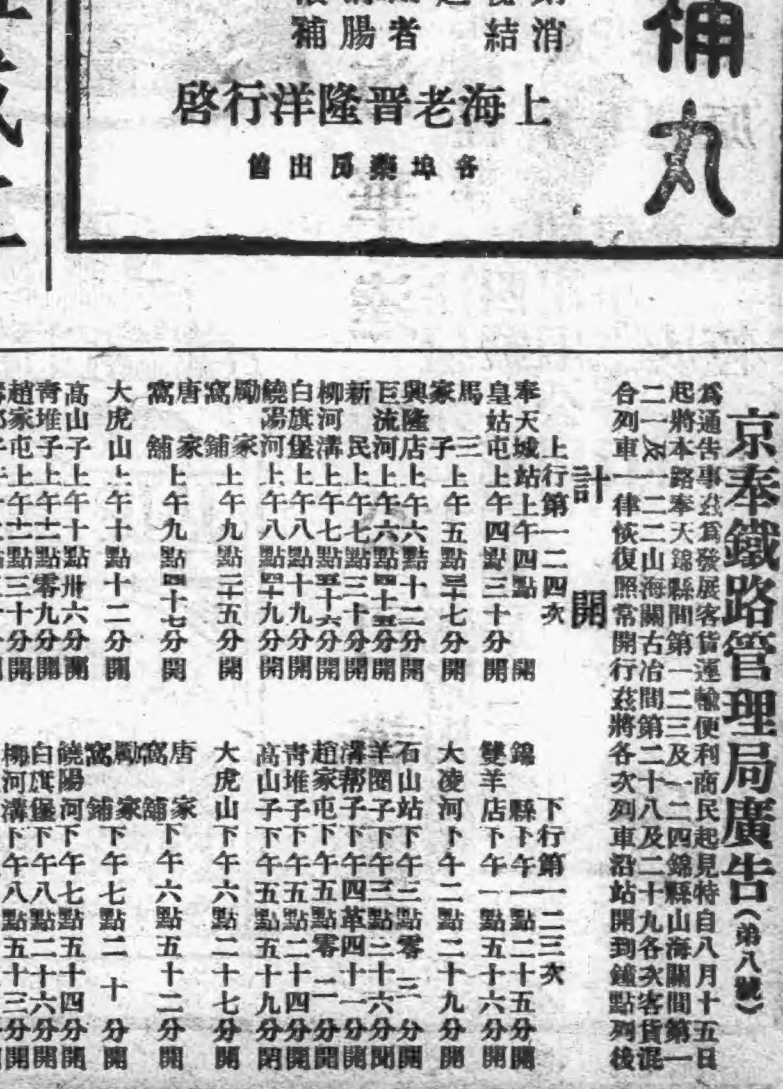 補丸
消
結
者
腸
補
上海老晋隆洋行啓
各埠藥房出售
京奉鐵路管理局廣告(弟八號)
爲通告事茲爲發展客貨運輸便利商民起見特自八月十五日
起將本路奉天錦縣間第一二三及一二四錦縣山海關間第一
二一及一二二山海關古冶間第二十八及二十九各次客貨混
合列車一律恢復照常開行茲將各次列車沿站開到鐘點列後
計開
上行第一二四次
奉天城站上午四點開
皇姑屯上午四點三十分開
馬三家子上午五點三十七分開
興隆店上午六點十二分開
巨流河上午六點四十五分開
新民上午七點三十分開
柳河溝上午七點五十六分開
白旗堡上午八點十九分開
饒陽河上午八點四十九分開
勵家窩鋪上午九點二十五分開
唐家窩鋪上午九點四十七分開
大虎山上午十點十二分開
高山子上午十點卅六分開
青堆子上午十一點零九分開
趙家屯上午十一點三十分開
下行第一二三次
錦縣下午一點二十五分開
雙羊店下午一點五十六分開
大凌河下午二點二十九分開
石山站下午三點零三分開
羊圈子下午三點二十六分開
溝幫子下午四點四十一分開
趙家屯下午五點零二分開
青堆子下午五點二十四分開
高山子下午五點五十九分開
大虎山下午六點二十七分開
唐家窩鋪下午六點五十二分開
勵家窩鋪下午七點二十分開
饒陽河下午七點五十四分開
白旗堡下午八點二十六分開
柳河溝下午八點五十三分開